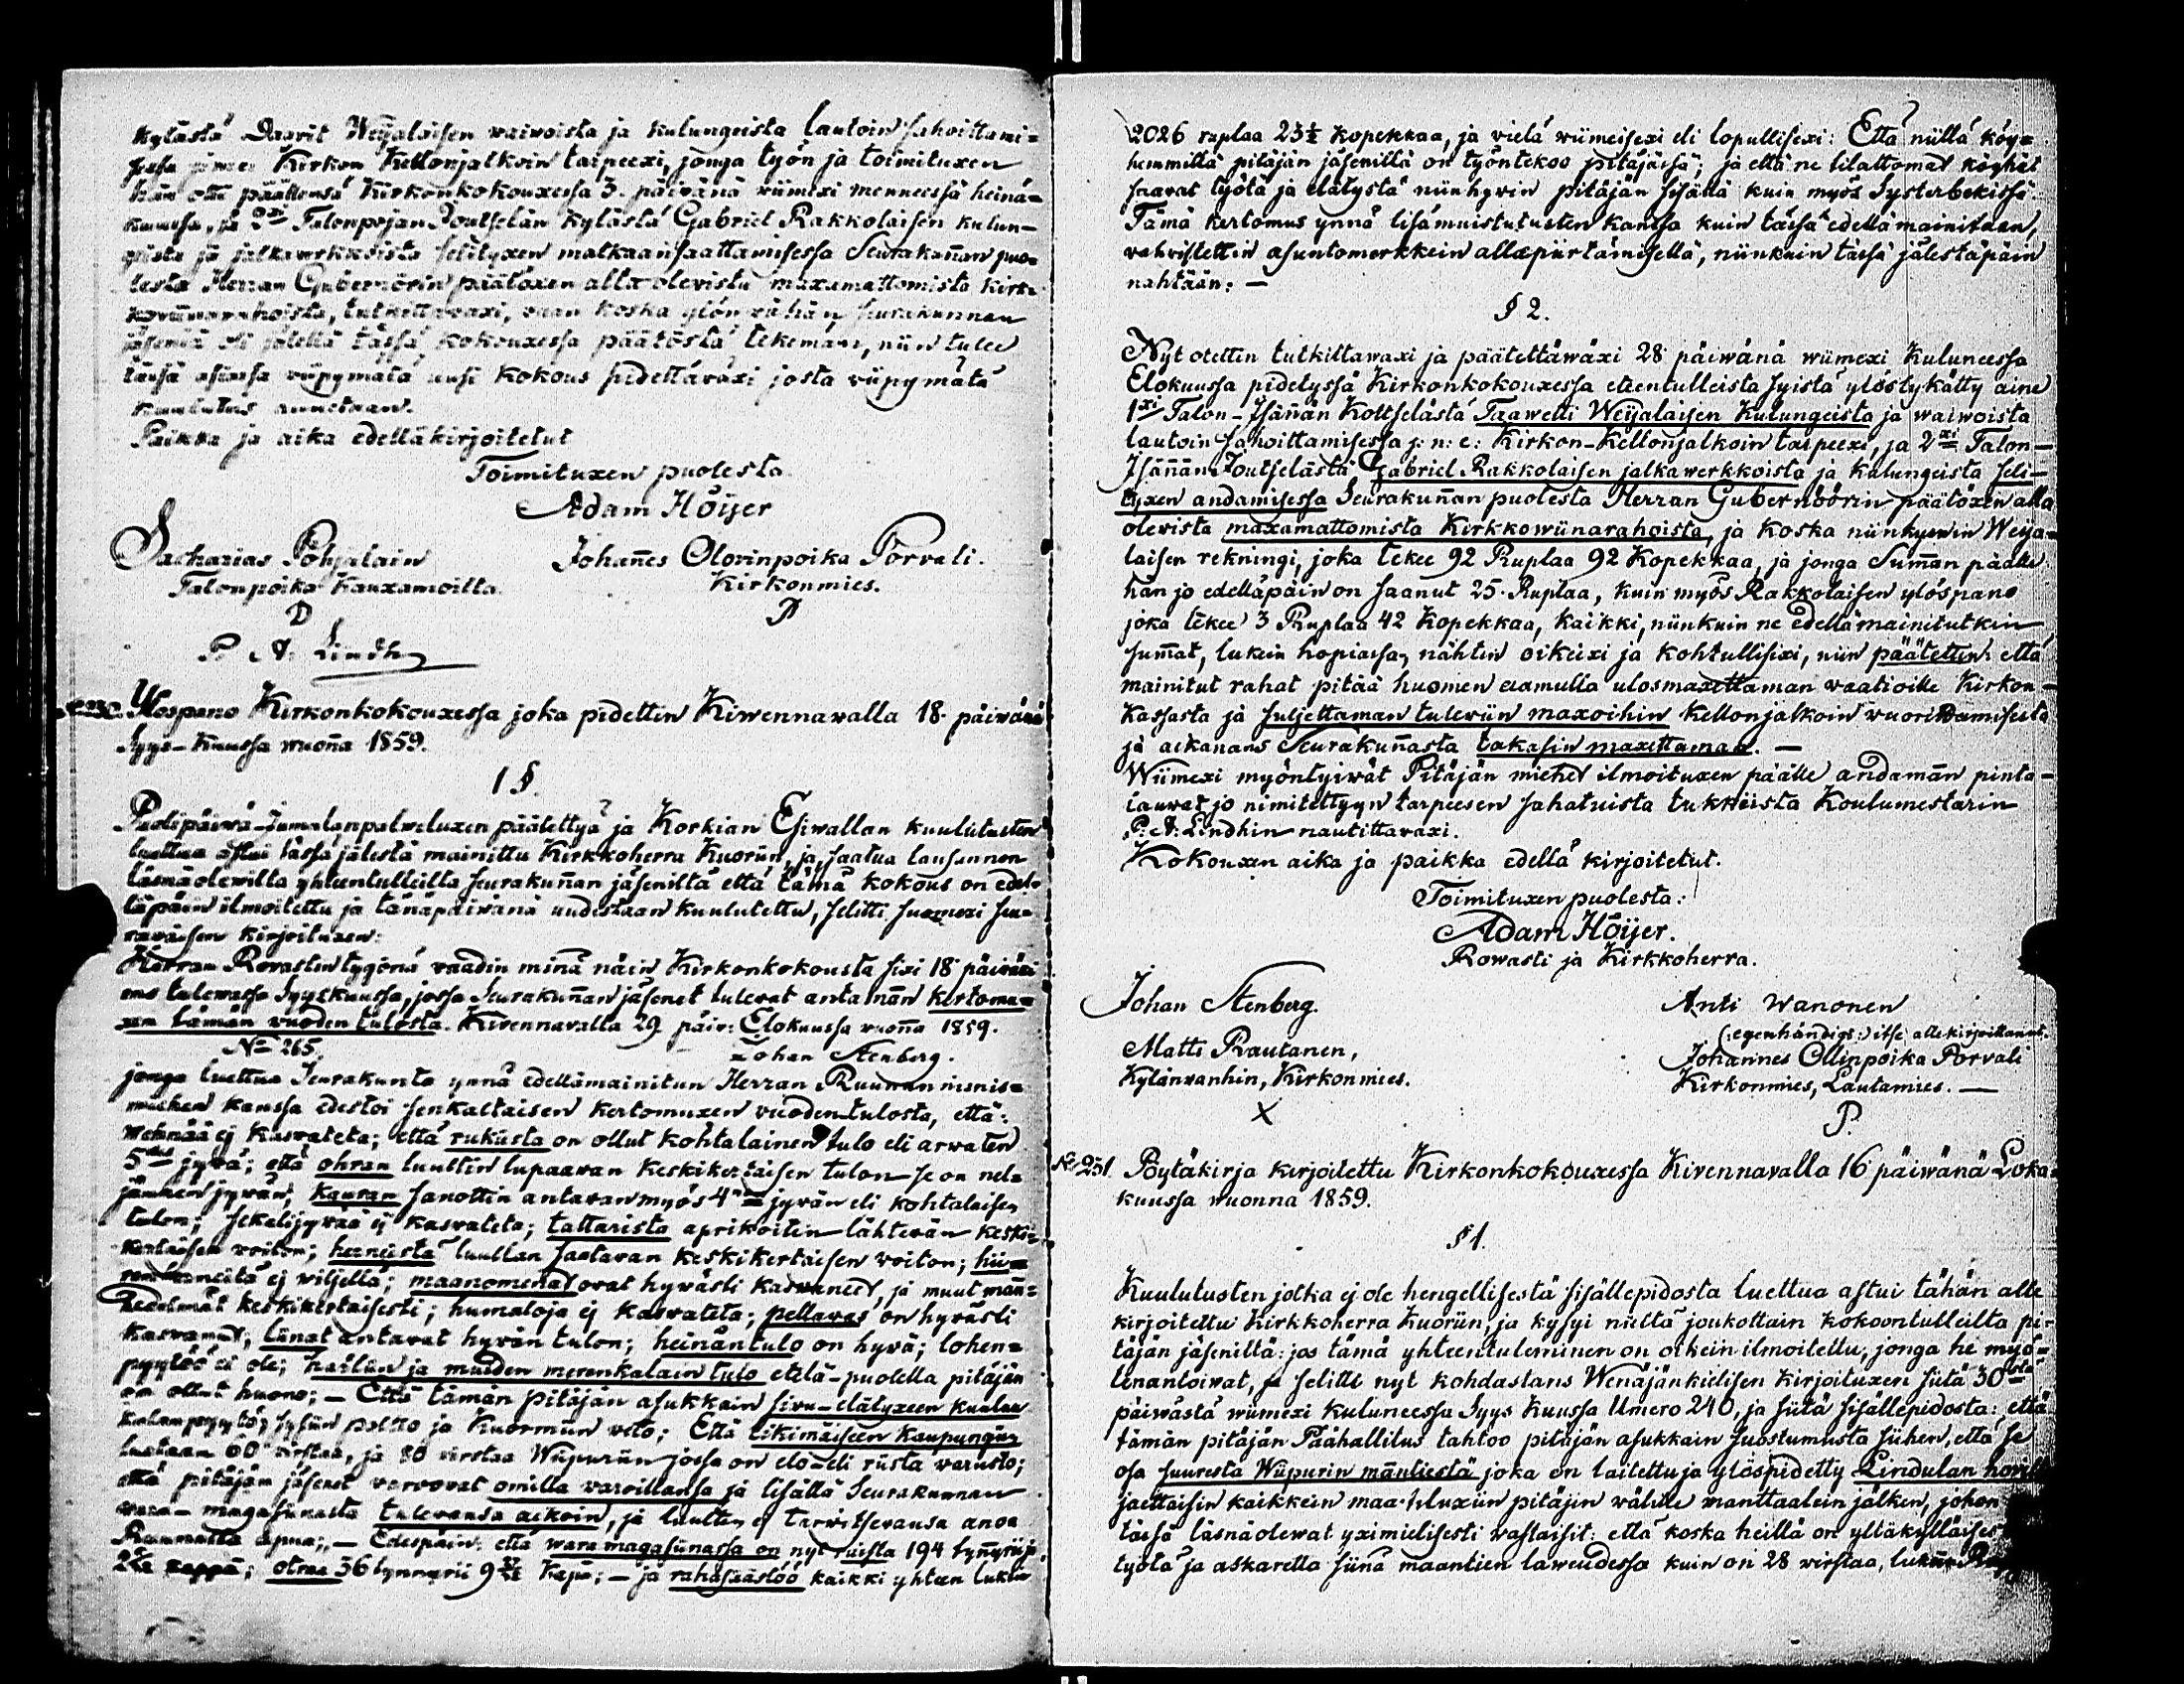 kylästä Daavit Weijalaisen waiwoista ja kulungeista lautoin sahoittami=
sessa Kirkon Kellonjalkoin tarpeexi, jonga työn ja toimituxen
hän otti päällensä Kirkonkokouxessa 3. päivänä viimexi menneessä heinä=
kuussa, ja 2xi Talonpojan Joutselän kylästä Gabriel Rakkolaisen kulun-
gista ja jalkawerkkoista selityxen matkaansaattamisessa Seurakuñan puo=
lesta Herran Gubernörin päätöxen alla olevista maxamattomista kirk=
kowiinarahoista, tutkittavaxi, vaan koska ylön vähän seurakunnan
jäseniä oli jälellä tässä kokouxessa päätöstä tekemään, niin tulee
tässä asiassa viipymätä uusi kokous pidettäväxi josta viipymätä
kuulutus annetaan.
Paikka ja aika edelläkirjoitetut
Toimituxen puolesta.
Adam Höijer
Sacharias Pohjalain
Talonpoika Kauxamoilta.
Johañes Olovinpoika Porvali.
Kirkonmies.
P
P. A. Lindh
Ylöspano Kirkonkokouxessa joka pidettin Kiwennavalla 18. päiwänä
Syys-Kuussa wuoña 1859.
1 §.
Puolipäiwä-Jumalanpalweluxen päätettyä ja Korkian Esiwallan kuulutusten
luettua astui tässä jälestä mainittu Kirkkoherra Kuoriin, ja saatua lausunnon
läsnäolewilta yhteentulleilta seurakuñan jäseniltä että tämä kokous on edel=
täpäin ilmoitettu ja tänäpäiwänä uudestaan kuulutettu, selitti suomexi seu=
raavaisen kirjoituxen:
Herran Rovastin tygönä vaadin minä näin Kirkonkokousta sixi 18 päiväxi
ens tulewassa Syyskuussa, jossa Seurakuñan jäsenet tulevat antamañ kertomu=
xen tämän vuoden tulosta. Kivennavalla 29 päiv: Elokuussa vuoña 1859.
No 265.
Johan Stenberg.
jonga luettua Seurakunta ynnä edellämainitun Herran Ruunun nisnis=
miehen kanssa edestoi senkaltaisen kertomuxen vuodentulosta, että:
wehnää ej kasvateta; että rukiista on ollut kohtalainen tulo eli arwaten
5des jyvä; että ohran luultin lupaavan keskikertaisen tulon se on nel=
jännen jyvän; kauran sanottin antavan myös 4nen jyvän eli kohtalaisen
tulon; sekalijyvää ej kasvateta; tattarista aprikoitin lähtevän keski=
kertaisen voiton; herneistä luullan saatavan keskikertaisen voiton;
ej viljellä; maanomenat ovat hyvästi kasvaneet, ja muut mañ=
hedelmät keskikertaisesti; humaloja ej kasvateta; pellavas on hyvästi
kasvanut; liinat antavat hyvän tulon; heinäntulo on hyvä; lohen=
pyytöö ei ole; hailin ja muiden merenkalain tulo etelä-puolella pitäjän
on ollut huono; — Että tämän pitäjän asukkain sivu-elätyxeen kuuluu
kalanpyytö, sysiin poltto ja Kuormiin veto; Että likimäiseen Kaupungiin
luetaan 60 virstaa, ja 80 virstaa Wiipuriin jossa on elo- eli riista varusto;
että pitäjän jäsenet varovat omilla varoillansa ja lisällä Seurakunnan
vara-magasiinasta tulevansa aikoin, ja luulten ej tarvitsevansa anoa
Ruunulta apua; — Edespäin: että waramagasiinassa on nyt riista 194 tyñyriiä
kappa; otraa 36 tynnyrii 9 Kapa; — ja rahasäästöö kaikki yhteen lukein
2026 ruplaa 23½ kopekkaa, ja vielä viimeisexi eli lopullisexi: Että niillä köy=
hemmillä pitäjän jäsenillä on työntekoo pitäjässä; ja että ne tilattomat köyhät
saavat työtä ja elätystä niinhyvin pitäjän sisällä kuin myös Systerbekissä.
Tämä kertomus ynnä lisämuistutusten kanssa kuin tässä edellä mainitaan,
vahvistettin asuntomerkkein allapiirtämisellä, niinkuin tässä jälestäpäin
nähtään: —
§ 2.
Nyt otettin tutkittawaxi ja päätettäwäxi 28 päiwänä wiimexi kuluneessa
Elokuussa pidetyssä Kirkonkokouxessa eteentulleista syistä ylöslykätty aine
1xi Talon-Isäñän Koltselästä Taawetti Weijalaisen kulungeista ja waiwoista
lautoin sahoittamisessa j: n: e: Kirkon-Kellonjalkoin tarpeexi, ja 2xi Talon-
Isäñän Joutselästä Gabriel Rakkolaisen jalkawerkkoista ja kulungeista seli=
tyxen andamisessa Seurakuñan puolesta Herran Gubernöörin päätöxen alla
olevista maxamattomista Kirkkowiinarahoista, ja koska niinhywin Weija=
laisen rekningi, joka tekee 92 Ruplaa 92 Kopekkaa, ja jonga Sumañ päälle
hän jo edelläpäin on saanut 25. Ruplaa, kuin myös Rakkolaisen ylöspano
joka tekee 3 Ruplaa 42 Kopekkaa, kaikki, niinkuin ne edellämainitutkin
sumat, lukein hopiassa, nähtin oikeixi ja kohtullisixi, niin päätettin: että
mainitut rahat pitää huomen aamulla ulosmaxettaman vaatioille Kirkon-
Kassasta ja suljettaman tuleviin maxoihin kellonjalkoin vuorittamisesta
ja aikanans Seurakuñasta takasin maxettaman. —
Wiimexi myöntyiwät Pitäjän miehet ilmoituxen päälle andamañ pinta-
lauvat jo nimitettyyn tarpeesen sahatuista tukkiista Koulumestarin
P: A: Lindhin nautittavaxi.
Kokouxen aika ja paikka edellä kirjoitetut.
Toimituxen puolesta:
Adam Höijer.
Rowasti ja Kirkkoherra.
Johan Stenberg.
Anti Wanonen
(:egenhändigt:) itse allekirjoittanut.
Matti Rautanen,
Kylänvanhin, Kirkonmies.
X
Johannes Ollinpoika Porvali
Kirkonmies, Lautamies. —
P.
No 231. Pöytäkirja kirjoitettu Kirkonkokouxessa Kivennavalla 16 päiwänä Loka=
kuussa wuonna 1859.
§ 1.
Kuulutusten jotka ej ole hengellisestä sisällepidosta luettua astui tähän alle
kirjoitettu Kirkkoherra Kuoriin, ja kysyi niiltä joukottain kokoontulleilta pi-
täjän jäseniltä: jos tämä yhteentuleminen on oikein ilmoitettu, jonga he myö-
tenantoivat, ja selitti nyt kohdastans Wenäjänkielisen kirjoituxen siitä 30stä
päiwästä wiimexi kuluneessa Syys Kuussa Umero 240, ja siitä sisällepidosta: että
tämän pitäjän Päähallitus tahtoo pitäjän asukkain suostumusta siihen, että se
osa suuresta Wiipurin mäntiestä joka on laitettu ja ylöspidetty Lindulan hovilta
jaettaisin kaikkein maa-teluxiin pitäjin välille manttaalein jälken, johon
tässä läsnäolewat yximielisesti vastaisit: että koska heillä on yltäkylläisesti
työtä ja askaretta siinä maantien laweudessa kuin on 28 virstaa,